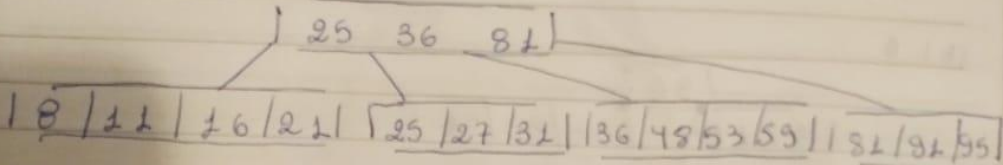 25 36 81
8 11 16 21 25 27 31 36 48 53 59 81 91 95